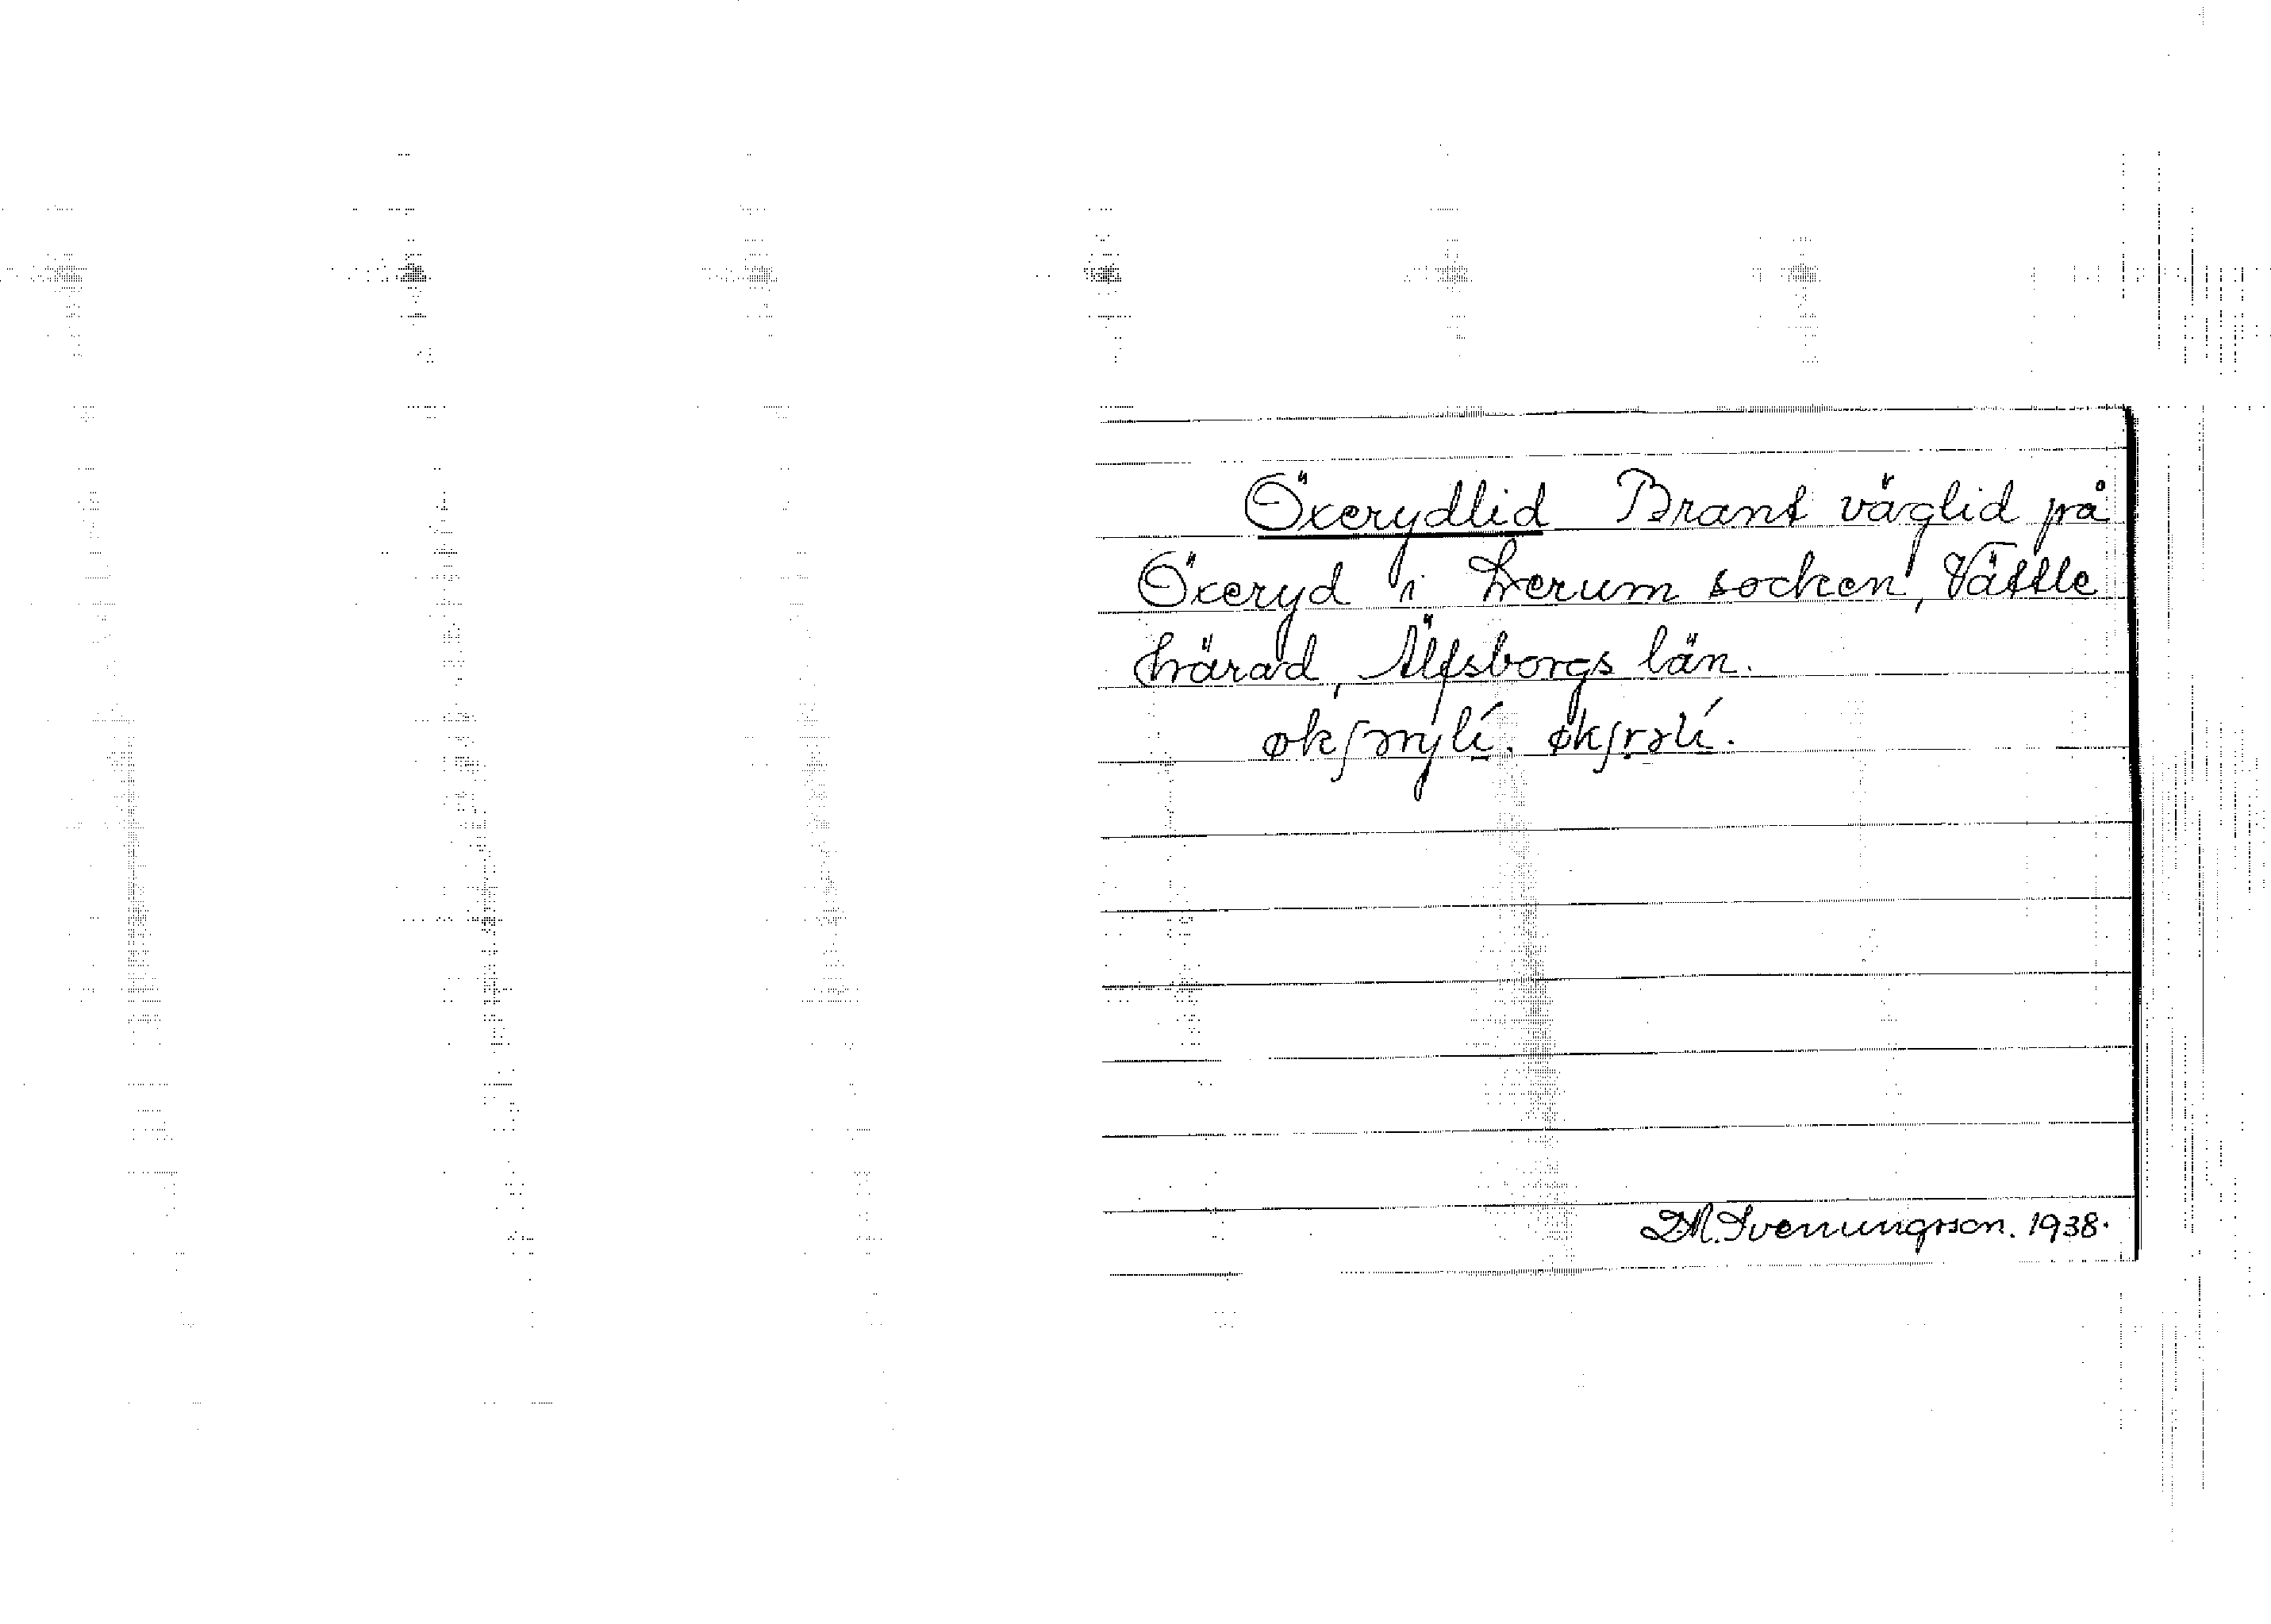 Öxerydlid Brant väglid på
Öxeryd i Lerum socken, Vättle
härad, Älfsborgs län.
D.M. Svenungsson. 1938.